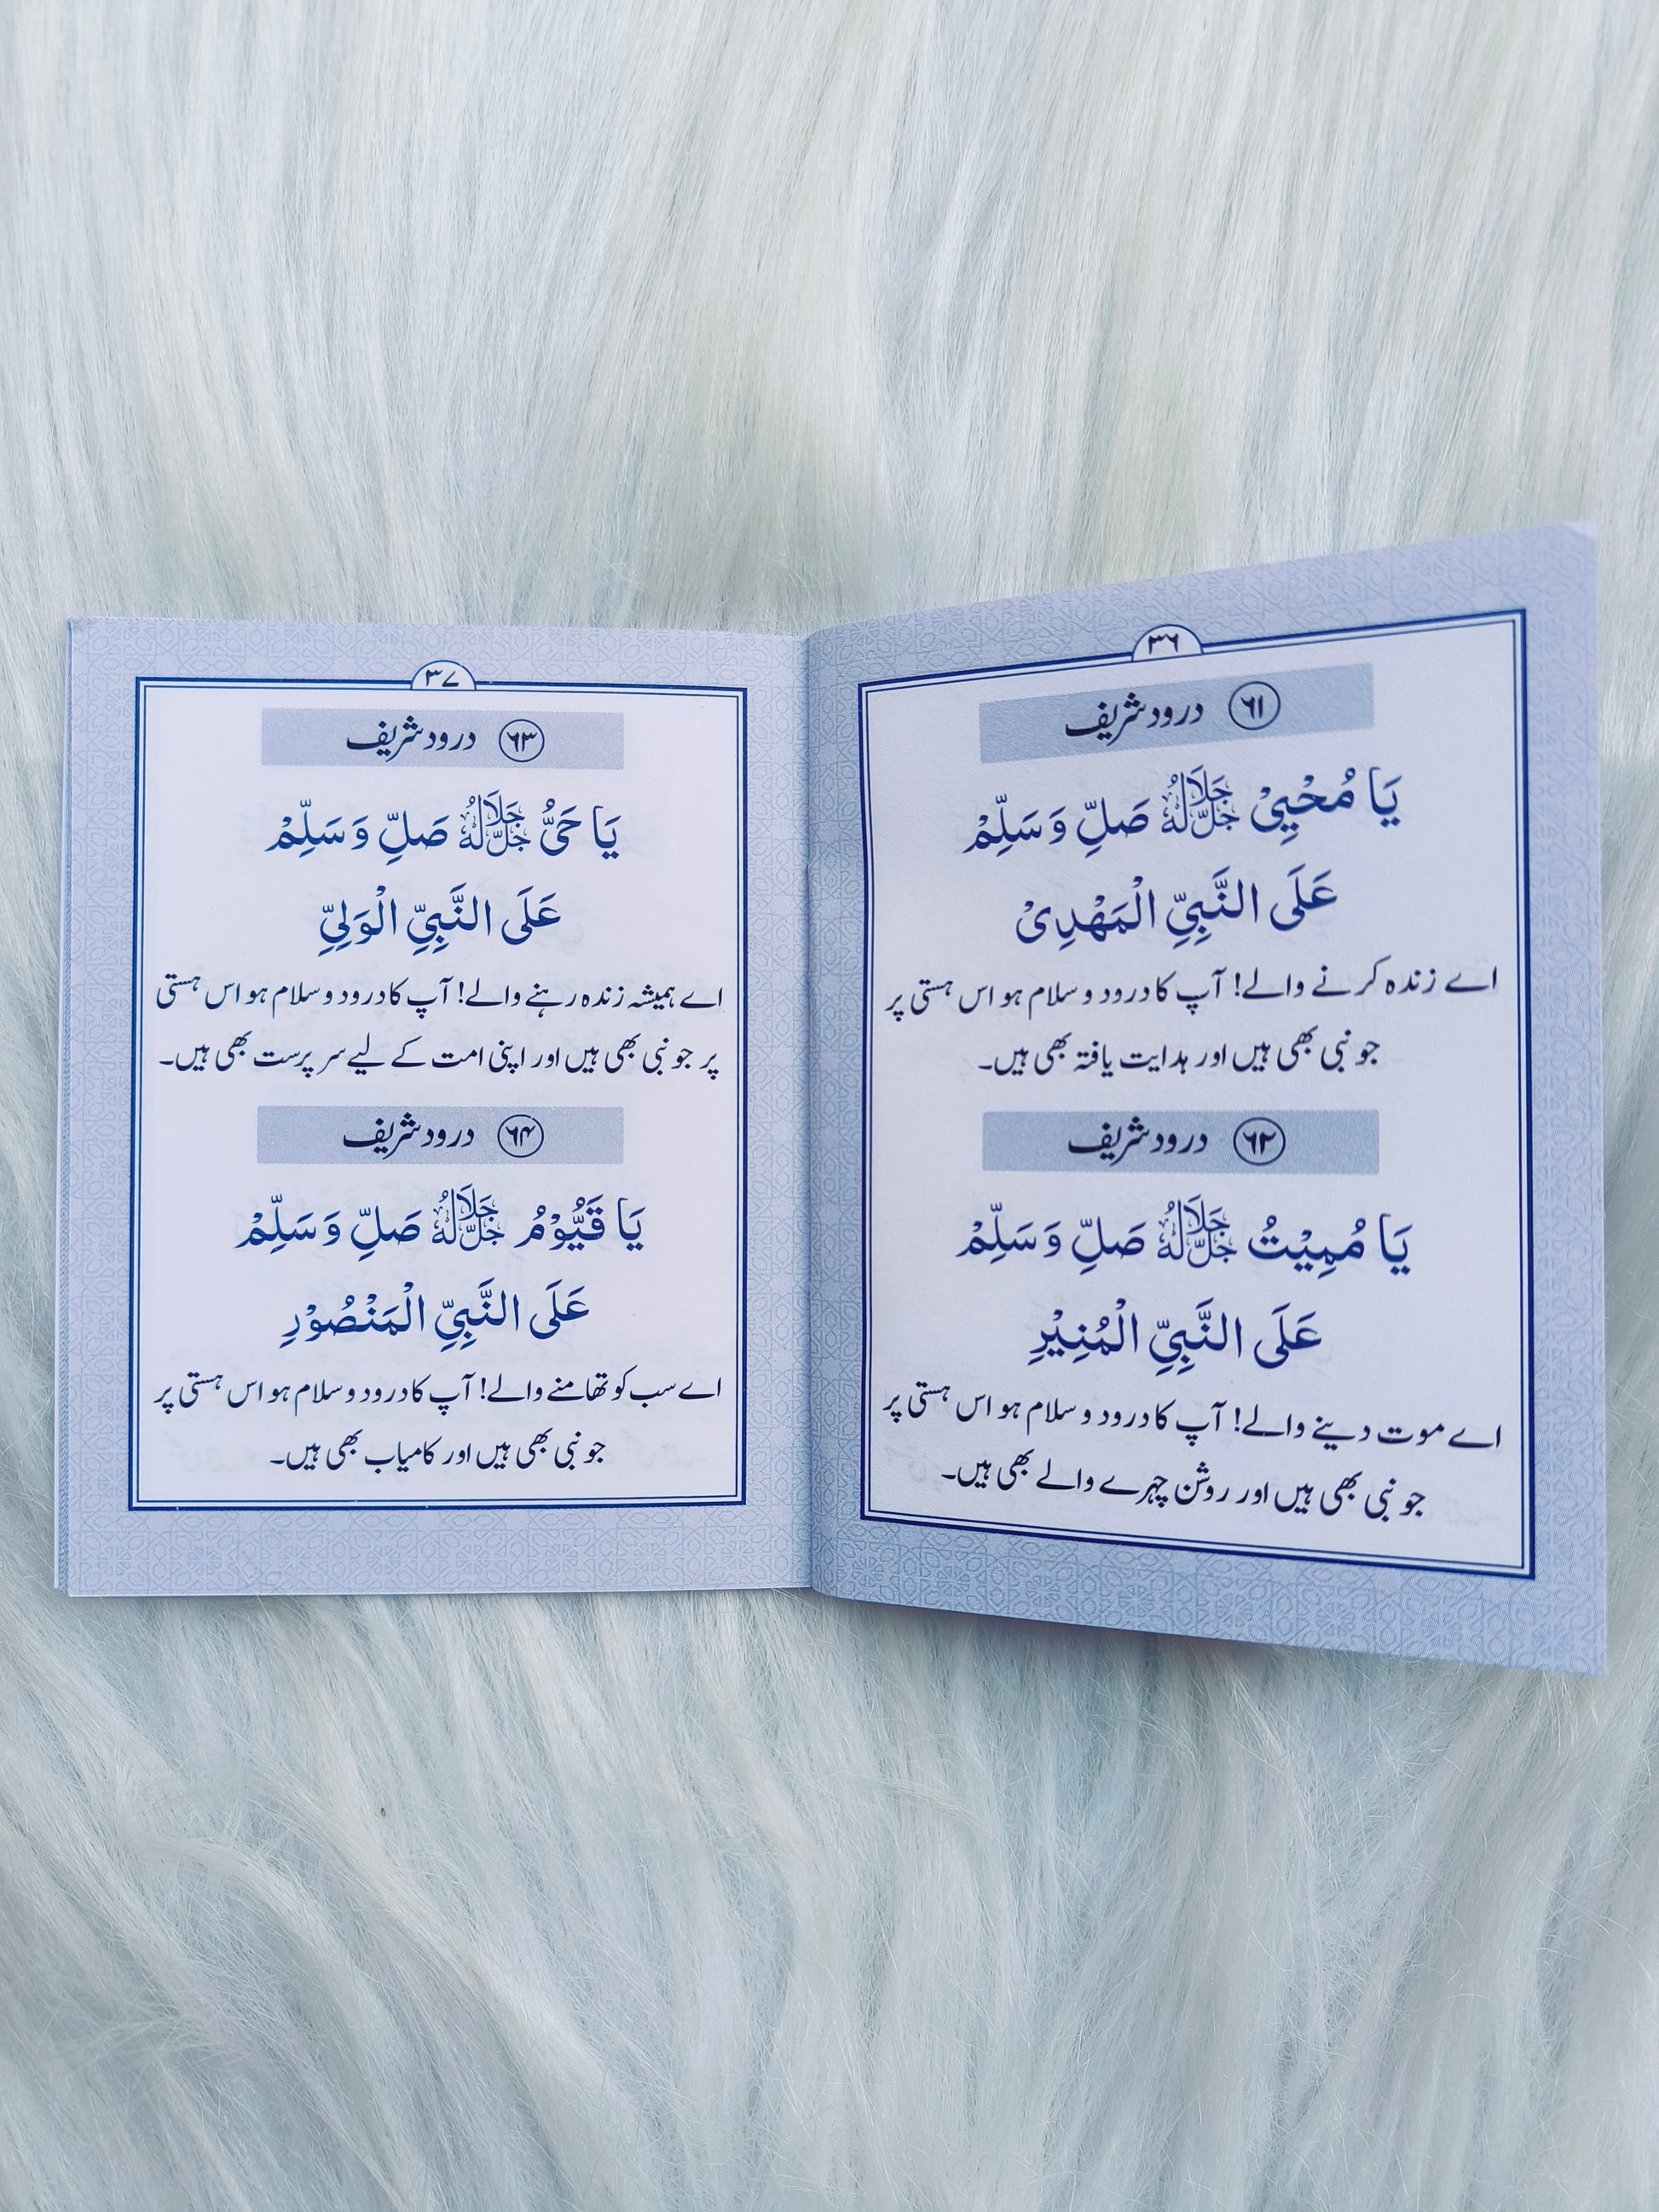 ٣٦
٦١ درود شریف
يَا مُحْيِىْ جَلَّ جَلَالُهٗ صَلِّ وَسَلِّمْ
عَلَى النَّبِيِّ الْمَهْدِىْ
اے زندہ کرنے والے! آپ کا درود و سلام ہو اس ہستی پر
جو نبی بھی ہیں اور ہدایت یافتہ بھی ہیں۔
٦٢ درود شریف
يَا مُمِيْتُ جَلَّ جَلَالُهٗ صَلِّ وَسَلِّمْ
عَلَى النَّبِيِّ الْمُنِيْرِ
اے موت دینے والے! آپ کا درود و سلام ہو اس ہستی پر
جو نبی بھی ہیں اور روشن چہرے والے بھی ہیں۔
٣٧
٦٣ درود شریف
يَا حَىُّ جَلَّ جَلَالُهٗ صَلِّ وَسَلِّمْ
عَلَى النَّبِيِّ الْوَلِيِّ
اے ہمیشہ زندہ رہنے والے! آپ کا درود و سلام ہو اس ہستی
پر جو نبی بھی ہیں اور اپنی امت کے لیے سرپرست بھی ہیں۔
٦۴ درود شریف
يَا قَيُّوْمُ جَلَّ جَلَالُهٗ صَلِّ وَسَلِّمْ
عَلَى النَّبِيِّ الْمَنْصُوْرِ
اے سب کو تھامنے والے! آپ کا درود و سلام ہو اس ہستی پر
جو نبی بھی ہیں اور کامیاب بھی ہیں۔